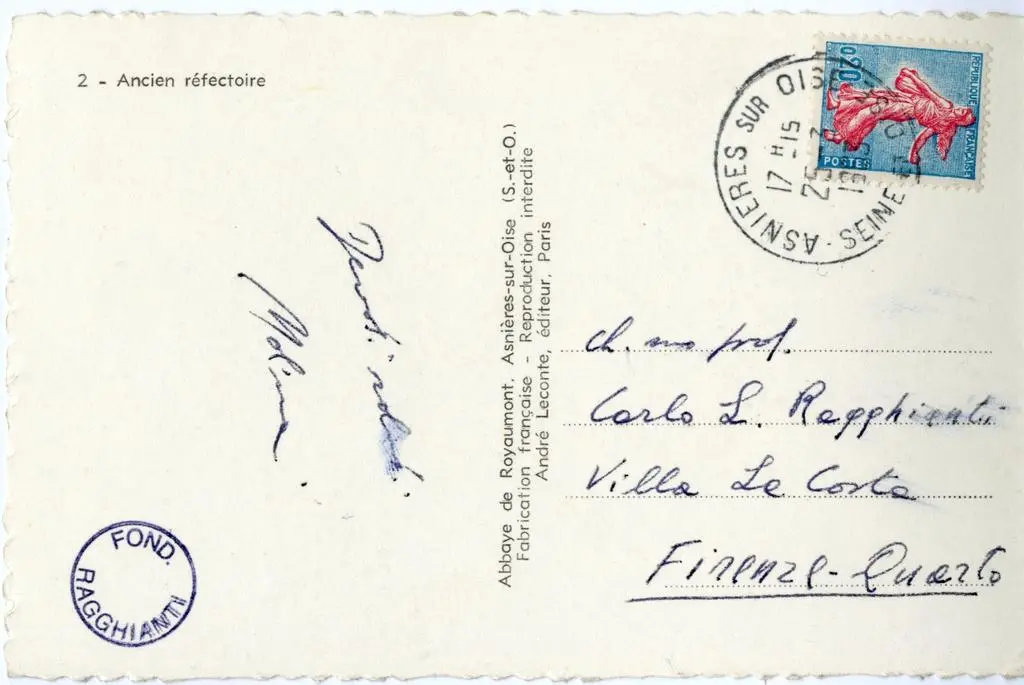 2 - Ancien réfectoire
Devoti saluti
Molina
FOND.
RAGGHIANTI
Abbaye de Royaumont, Asnières-sur-Oise (S.-et-O.)
Fabrication française - Reproduction interdite
André Leconte, éditeur, Paris
0,20
REPUBLIQUE FRANÇAISE
POSTES
ASNIERES SUR OISE
SEINE
17 H -15
Ch. mo prof.
Carlo L. Ragghianti
Villa La Costa
Firenze-Quarto